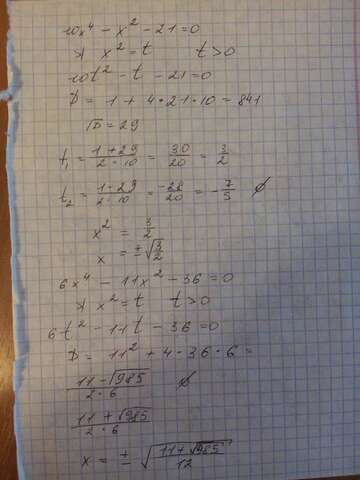 10x⁴ - x² - 21 = 0
x² = t t > 0
10t² - t - 21 = 0
D = 1 + 4 * 21 * 10 = 841
√D = 29
t₁ = (1 + 29)/(2 · 10) = 30/20 = 3/2
t₂ = (1 - 29)/(2 · 10) = -28/20 = -7/5 ∅
x² = 3/2
x = ±√(3/2)
6x⁴ - 11x² - 36 = 0
x² = t t > 0
6t² - 11t - 36 = 0
D = 11² + 4 · 36 · 6 =
(11 - √985)/(2 · 6) ∅
(11 + √985)/(2 · 6)
x = ±√((11 + √985)/12)